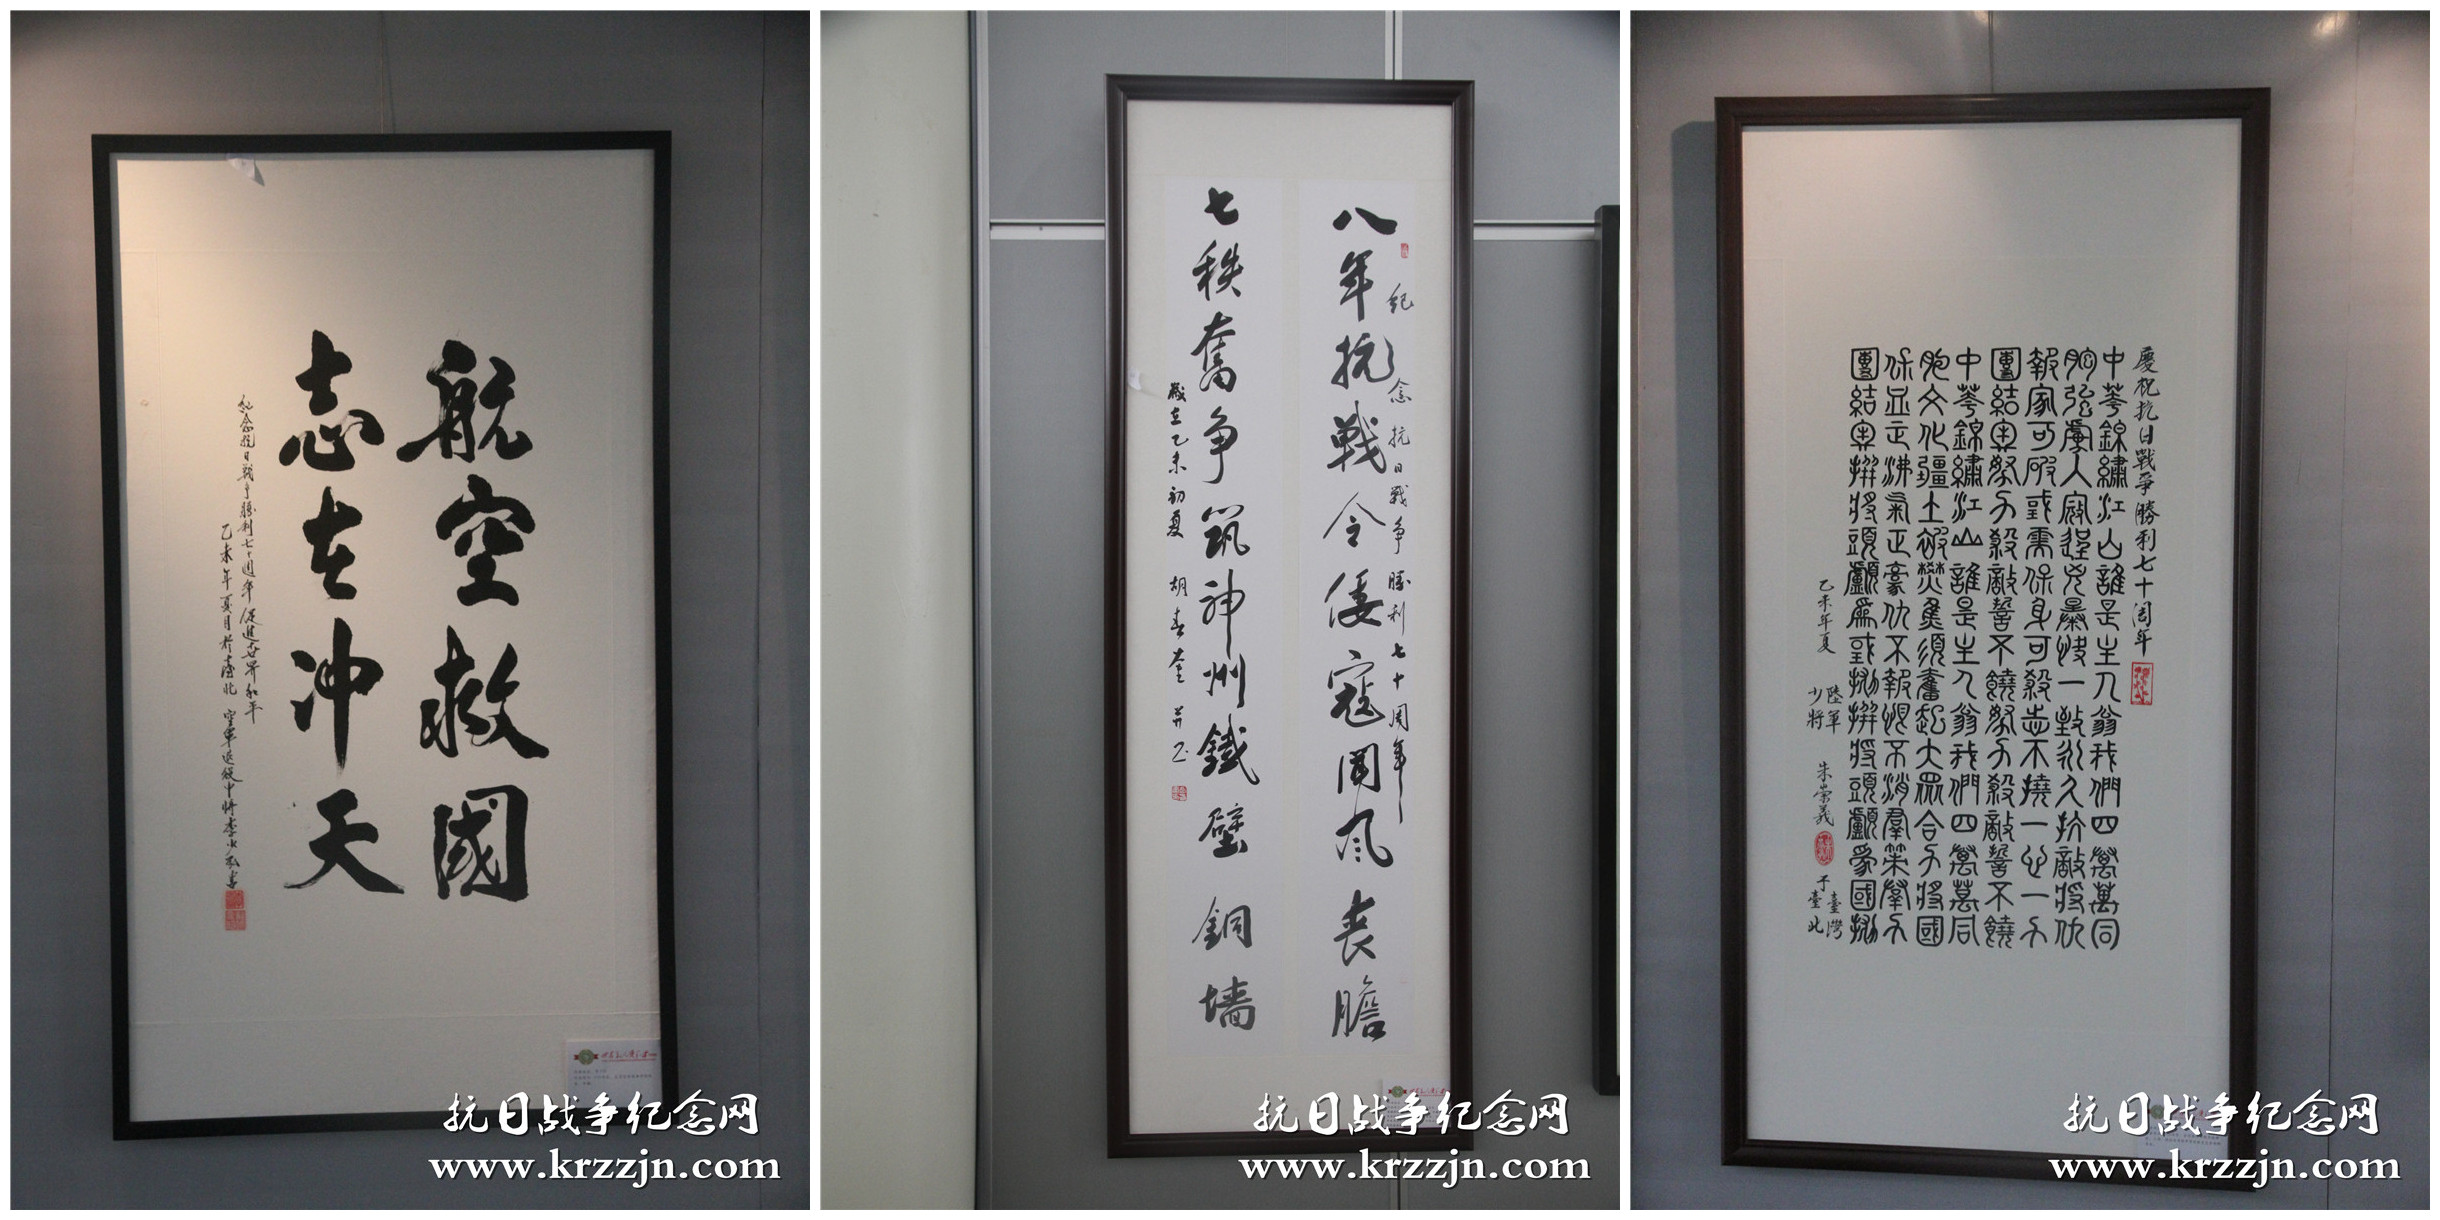 航空救國
志在沖天
紀念抗日戰爭勝利七十週年促進世界和平
乙未年夏月於臺北 空軍退役中將李
抗日战争纪念网
www.krzzjn.com
紀念抗日戰争勝利七十周年
八年抗戰令倭寇闻风丧膽
七秩奮争筑神州鐵壁銅墙
歲在乙未初夏 胡春奎 并书
抗日战争纪念网
www.krzzjn.com
慶祝抗日戰爭勝利七十周年
中華錦繡江山誰是主人翁我們四萬萬同
胞強虜入寇逞兇暴快一致永久抗敵將仇
報家可破國需保身可殺志不撓一心一力
團結牢努力殺敵誓不饒努力殺敵誓不饒
中華錦繡江山誰是主人翁我們四萬萬同
胞文化疆土被焚焦須奮起大眾合力將國
保血正沸氣正豪仇不報恨不消羣策羣力
團結牢拼將頭顱為國拋拼將頭顱為國拋
乙未年夏 陸軍少將 朱崇義 于臺灣臺北
抗日战争纪念网
www.krzzjn.com